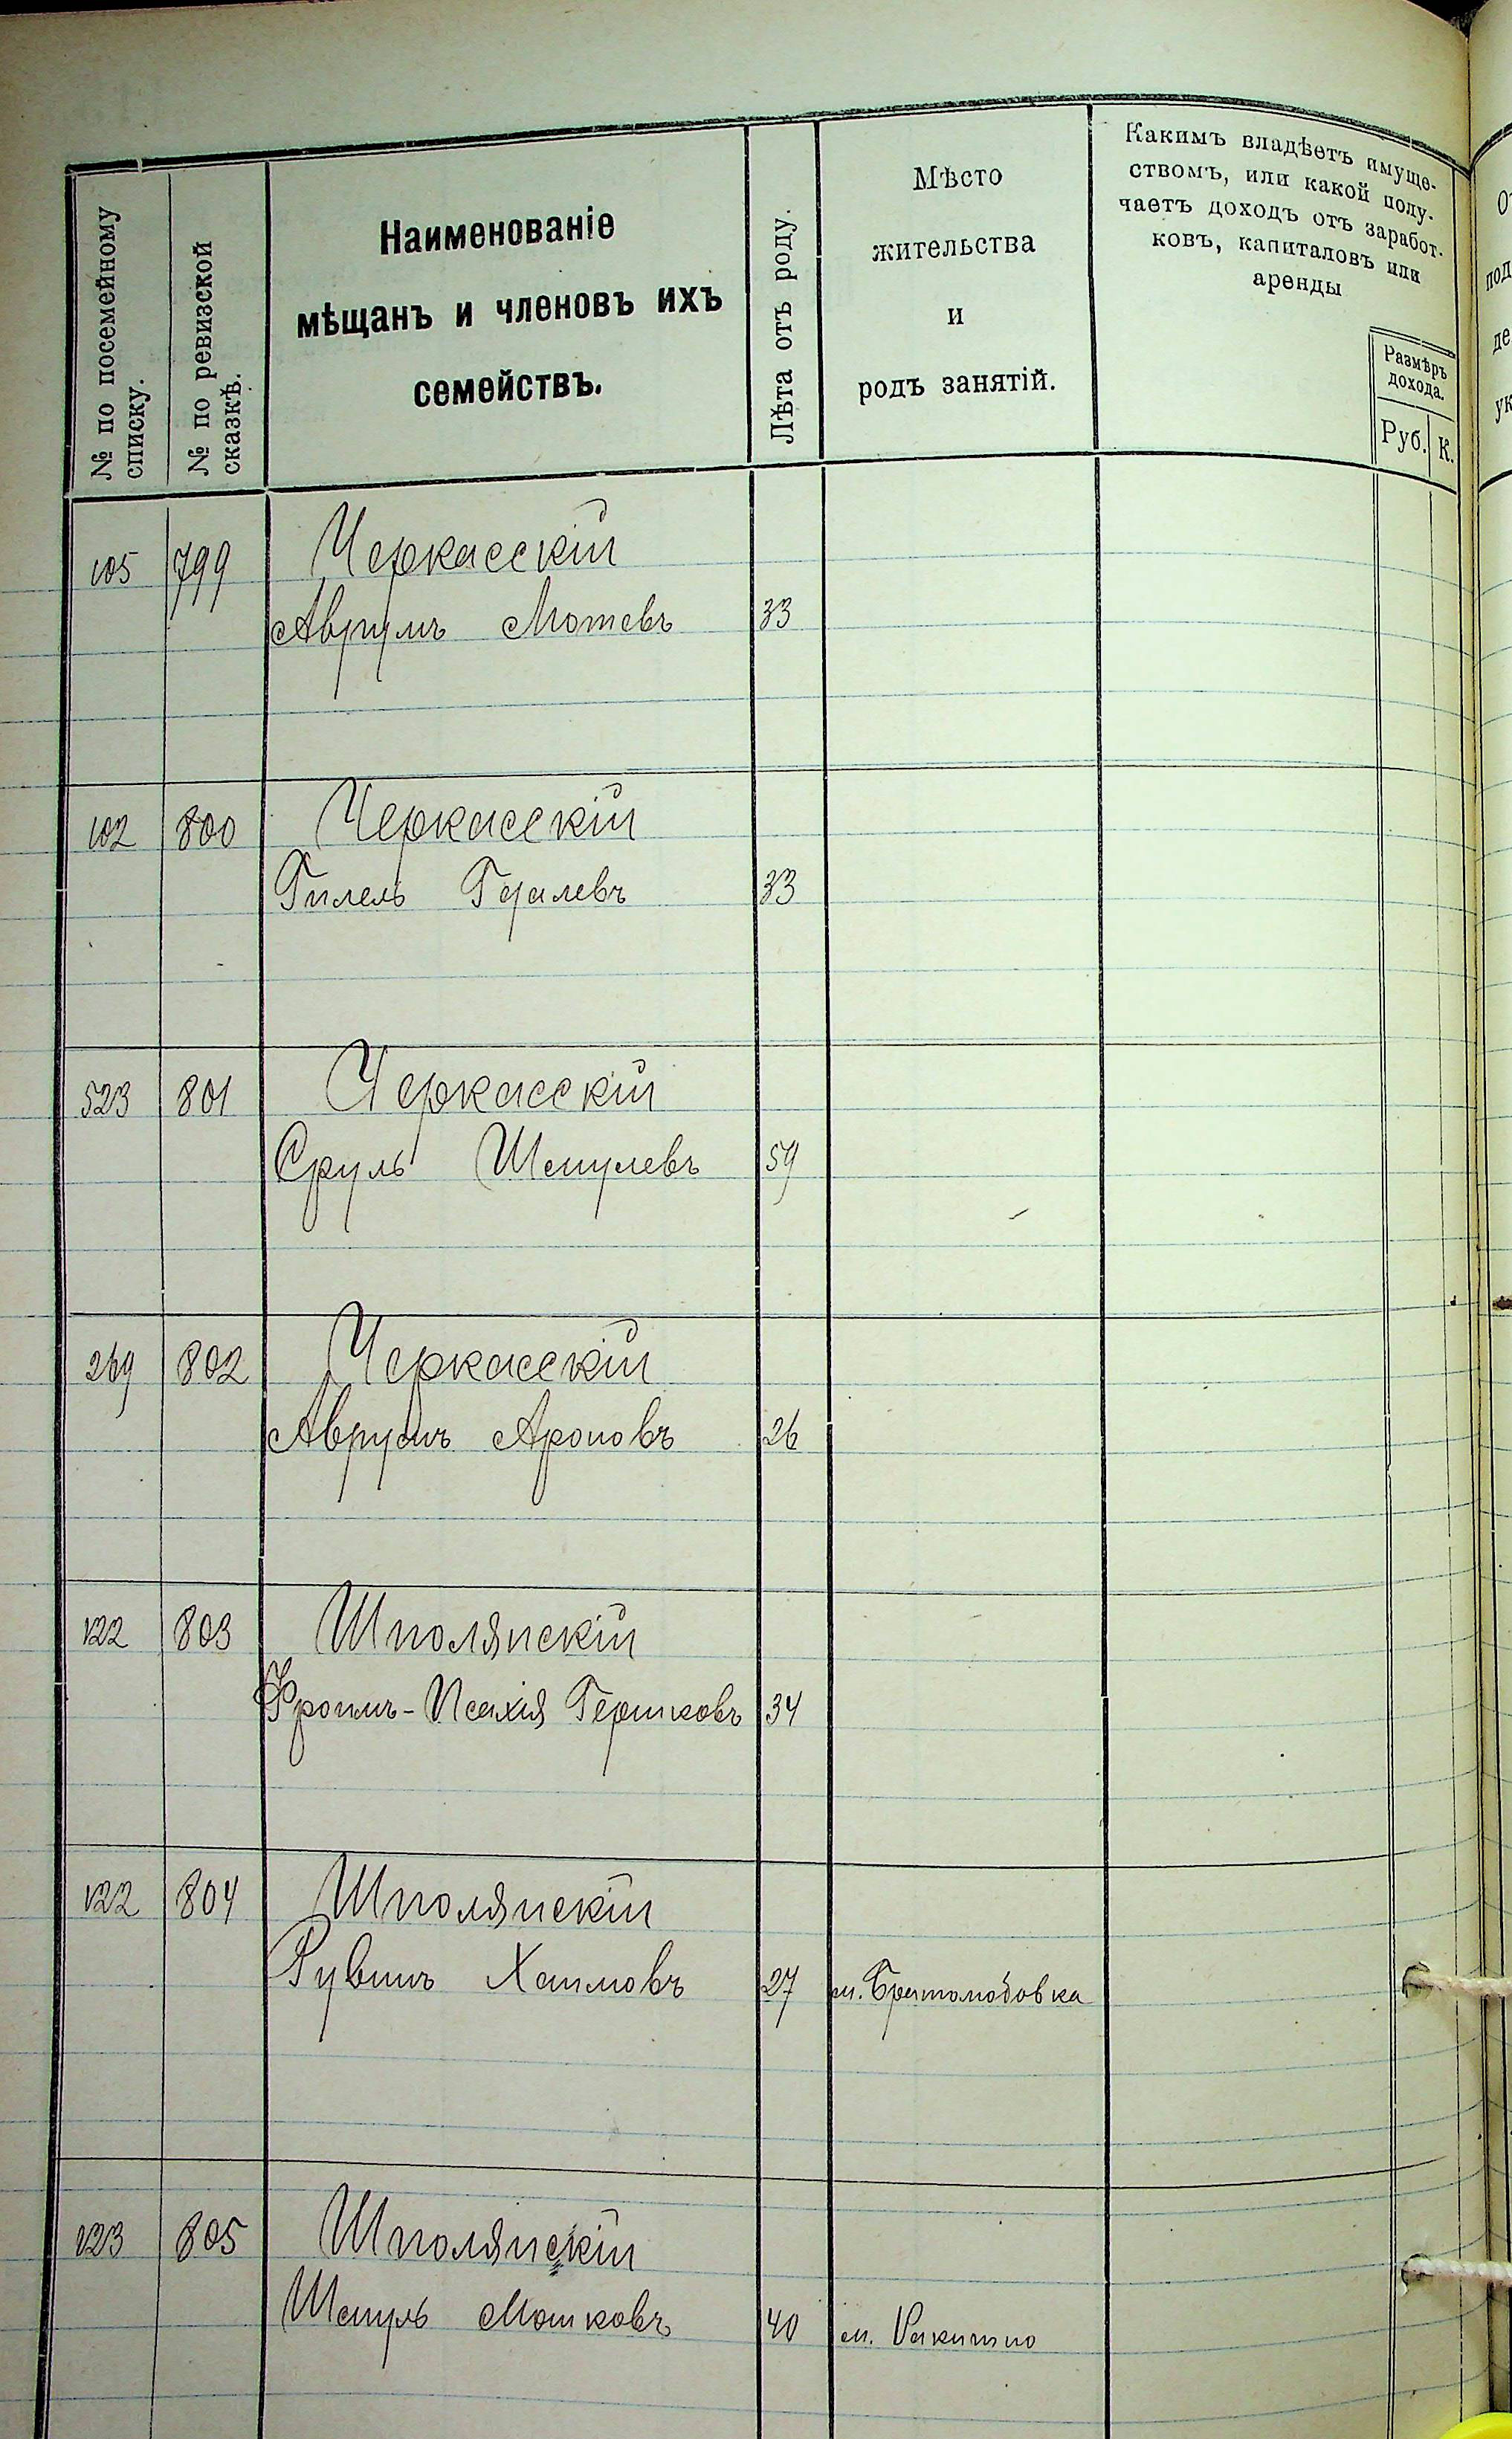 № по посемейному
списку.
№ по ревизской
сказкѣ.
Наименованіе
мѣщанъ и членовъ ихъ
семействъ.
Лѣта отъ роду.
Мѣсто
жительства
и
родъ занятій.
Какимъ владѣетъ имуще-
ствомъ, или какой полу-
чаетъ доходъ отъ заработ-
ковъ, капиталовъ или
аренды
Размѣръ
дохода.
Руб. К.
105 799 Черкасскій
Аврумъ Мотевъ 33
102 800 Черкасскій
Гилель Гдалевъ 33
523 801 Черкасскій
Сруль Шмулевъ 59
269 802 Черкасскій
Аврумъ Ароновъ 26
122 803 Шполянскій
Фроимъ-Исахія Гершковъ 34
122 804 Шполянскій
Рувинъ Хаимовъ 27 м. Братолюбовка
123 805 Шполянскій
Шмуль Мошковъ 40 м. Ракитно